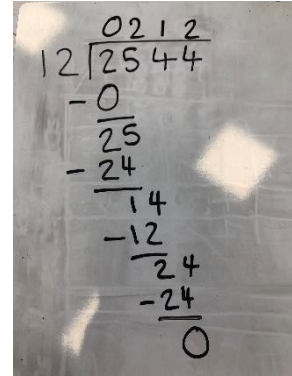 0212
12 2544
-0
25
-24
14
-12
24
-24
0